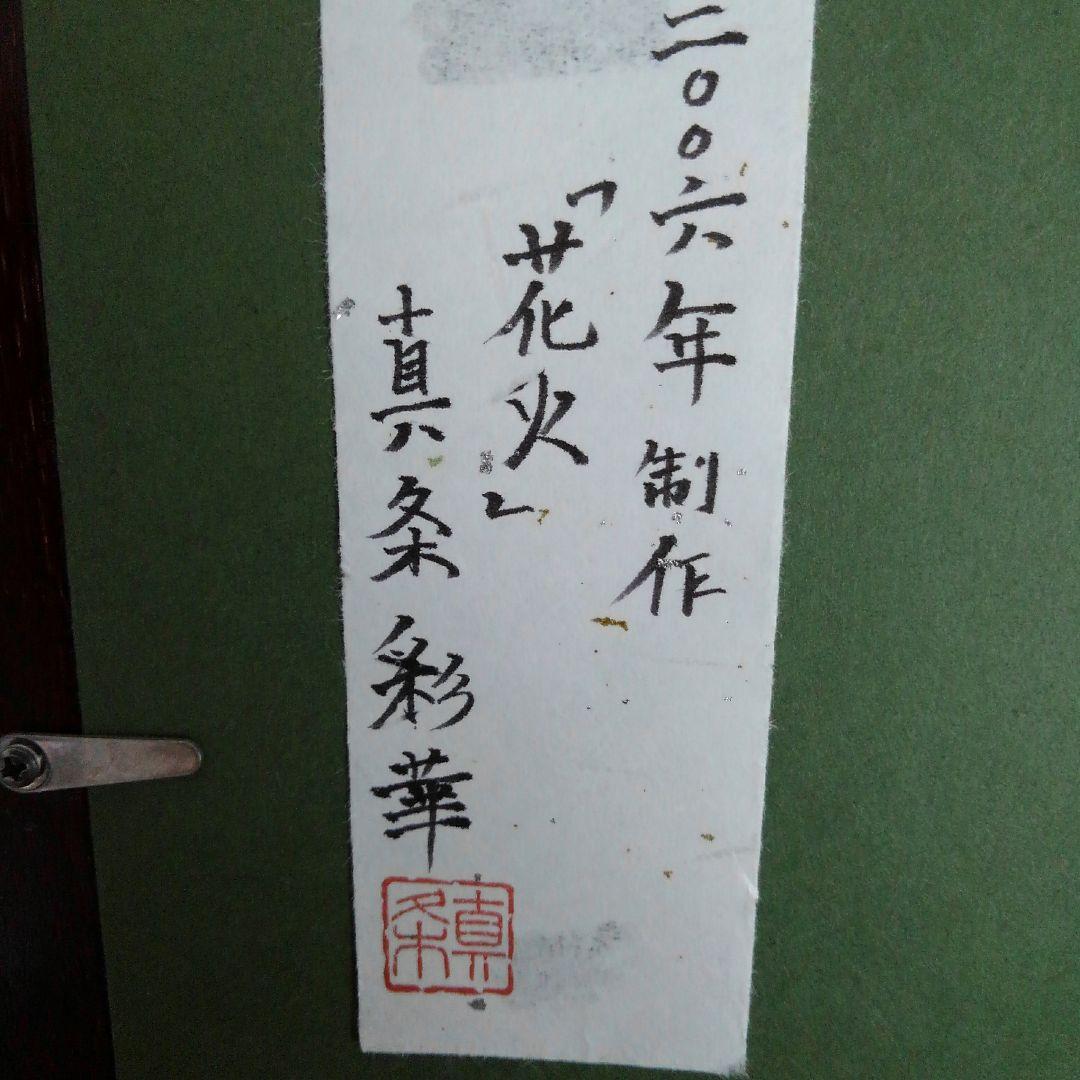 二〇〇六年制作
「花火」
真条彩華
真条